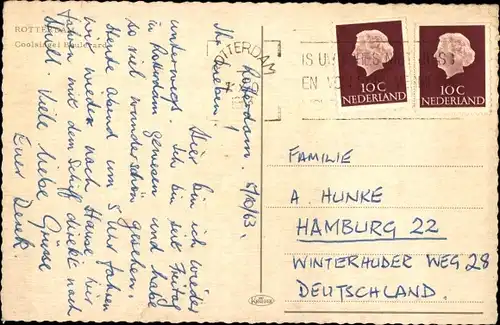 ROTTERDAM
Coolsingel Boulevard
Rotterdam, 6/10/63.
Ihr Lieben!
Hier bin ich wieder
unterwegs. Ich bin seit Freitag
in Rotterdam gewesen und habe
so viel wunderschön gesehen.
Heute Abend um 5 Uhr fahren
wir wieder nach Hause, wir
fahren mit dem Schiff direkt nach
Hull. Viele liebe Grüsse
Euer
ROTTERDAM
10 C
NEDERLAND
10 C
NEDERLAND
FAMILIE
A. HUNKE
HAMBURG 22
WINTERHUDER WEG 28
DEUTSCHLAND.